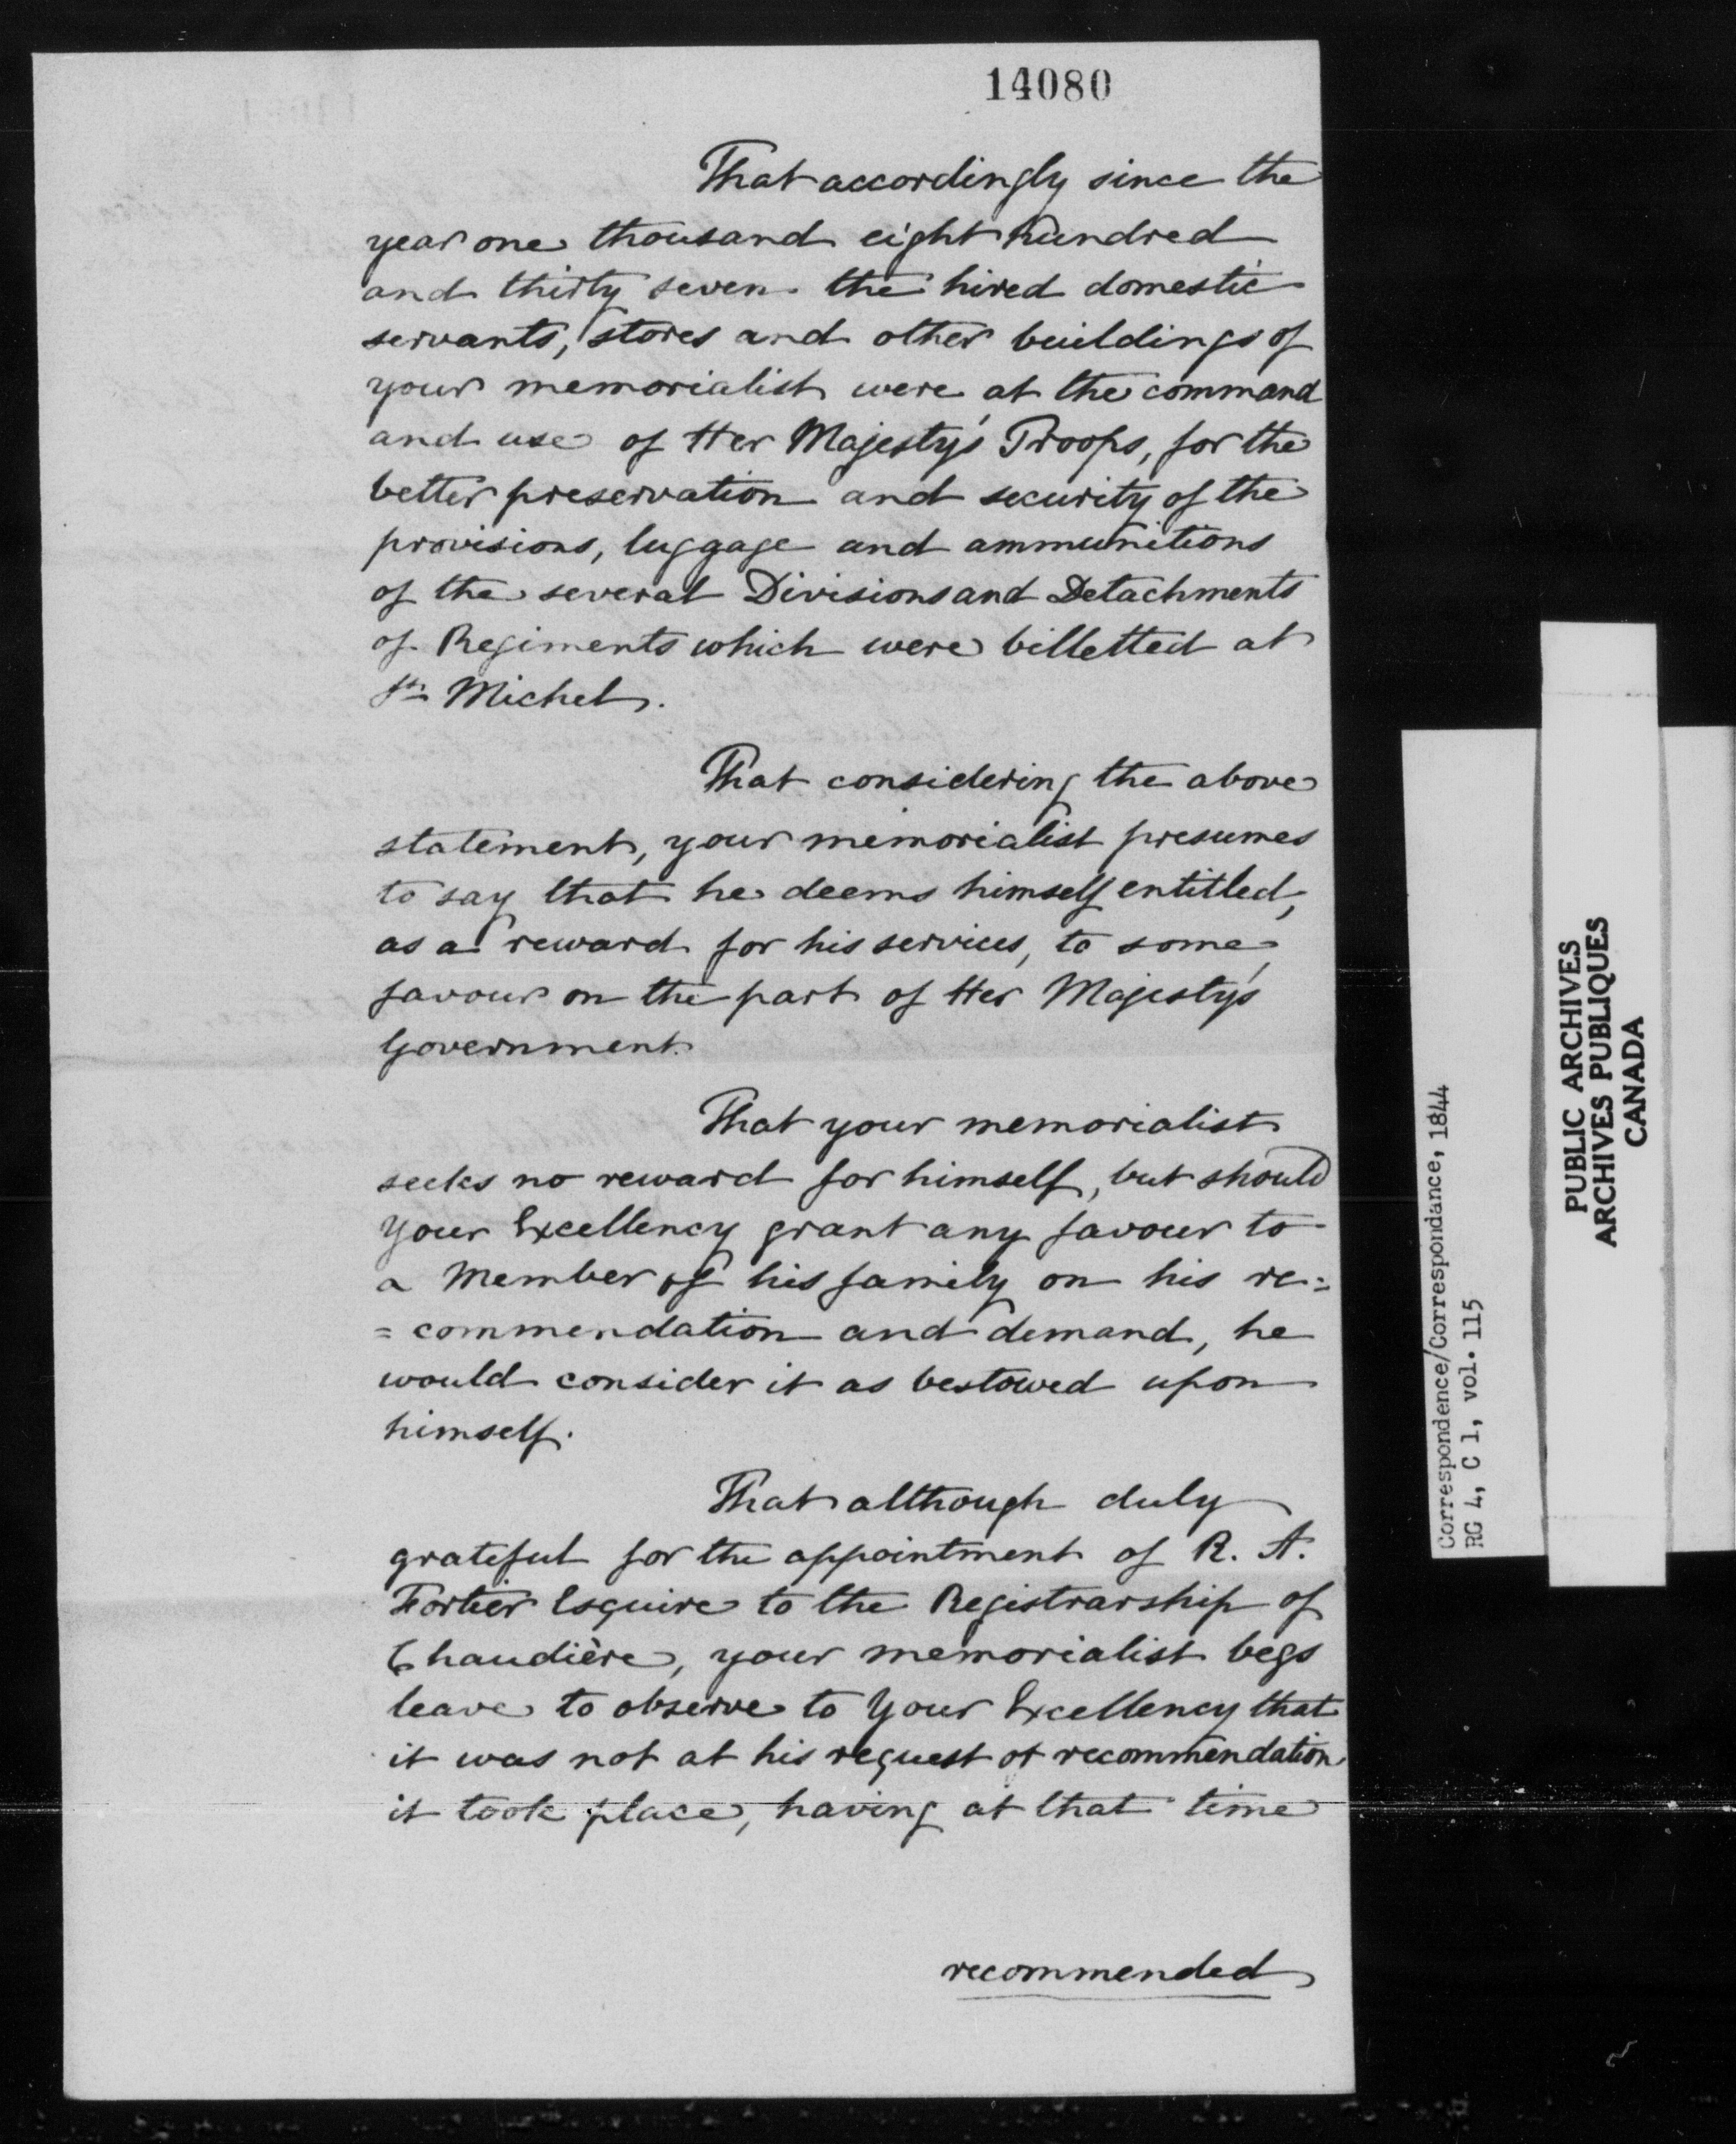 14080
That accordingly since the
year one thousand eight hundred
and thirty seven the hired domestic
servants, stores and other buildings of
your memorialist were at the command
and use of Her Majesty's Troops, for the
better preservation and security of the
provisions, luggage and ammunitions
of the several Divisions and Detachments
of Regiments which were billetted at
St. Michel.
That considering the above
statement, your memorialist presumes
to say that he deems himself entitled,
as a reward for his services, to some
favour on the part of Her Majesty's
Government.
That your memorialist
seeks no reward for himself, but should
Your Excellency grant any favour to
a Member of his family on his re=
=commendation and demand, he
would consider it as bestowed upon
himself.
That although duly
grateful for the appointment of R. A.
Fortier Esquire to the Registrarship of
Chaudière, your memorialist begs
leave to observe to Your Excellency that
it was not at his request or recommendation
it took place, having at that time
recommended
Correspondence/Correspondance, 1844
RG 4, C 1, vol. 115
PUBLIC ARCHIVES
ARCHIVES PUBLIQUES
CANADA